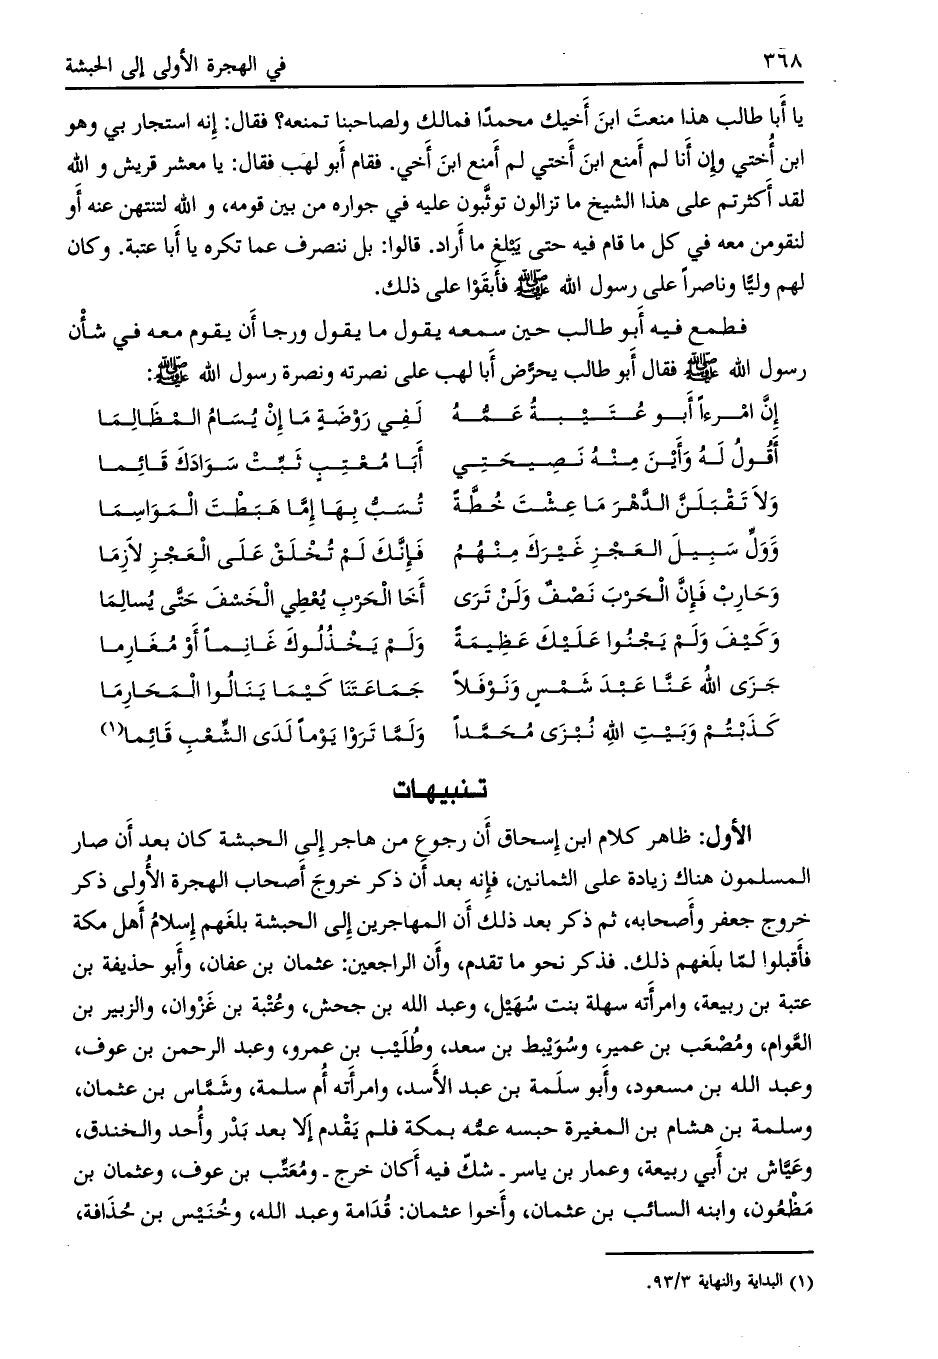 ٣٦٨ في الهجرة الأولى إلى الحبشة
يا أَبا طالب هذا منعتَ ابنَ أَخيك محمدًا فمالك ولصاحبنا تمنعه؟ فقال: إنه استجار بي وهو
ابن أُختي وإن أنا لم أَمنع ابنَ أختي لم أمنع ابنَ أَخي. فقام أبو لهب فقال: يا معشر قريش و الله
لقد أَكثرتم على هذا الشيخ ما تزالون توثَّبون عليه في جواره من بين قومه، و الله لتنتهن عنه أَو
لنقومن معه في كل ما قام فيه حتى يَبْلغ ما أَراد. قالوا: بل ننصرف عما تكره يا أَبا عتبة. وكان
لهم وليًّا وناصراً على رسول الله ﷺ فأَبقَوْا على ذلك.
فطمع فيه أَبو طالب حين سمعه يقول ما يقول ورجا أَن يقوم معه في شأْن
رسول الله ﷺ فقال أَبو طالب يحرِّض أَبا لهب على نصرته ونصرة رسول الله ﷺ:
إِنَّ امْرءاً أَبو عُتَيْبِةُ عَمُّهُ لَفِي رَوْضَةٍ مَا إِنْ يُسَامُ المْظَالِمَا
أَقُولُ لَهُ وَأَيْنَ مِنْهُ نَصِيحَتِي أَبَا مُعْتِبٍ ثَبِّتْ سَوَادَكَ قَائِما
وَلاَ تَقْبَلَنَّ الدَّهْرَ مَا عِشْتَ خُطَّةً تُسَبُّ بِهَا إِمَّا هَبَطْتَ الْمَوَاسِمَا
وَوَلِّ سَبِيلَ العَجْزِ غَيْرَكَ مِنْهُمُ فَإِنَّكَ لَمْ تُخْلَقْ عَلَى الْعَجْزِ لاَزِمَا
وَحَارِبْ فَإِنَّ الْحَرْبَ نَصْفٌ وَلَنْ تَرَى أَخَا الْحَرْبِ يُعْطِي الْخَسْفَ حَتَّى يُسالِمَا
وَكَيْفَ وَلَمْ يَجْنُوا عَلَيْكَ عَظِيمَةً وَلَمْ يَخْذُلُوكَ غَانِماً أَوْ مُغَارِما
جَزَى اللهُ عَنَّا عَبْدَ شَمْسٍ وَنَوْفَلاً جَمَاعَتَنَا كَيْمَا يَنَالُوا الْمَحَارِمَا
كَذَبْتُمْ وَبَيْتِ اللهِ نُبْزَى مُحَمَّداً وَلَمَّا تَرَوْا يَوْماً لَدَى الشِّعْبِ قَائِما(١)
تنبيهات
الأول: ظاهر كلام ابن إِسحاق أَن رجوع من هاجر إِلى الحبشة كان بعد أَن صار
المسلمون هناك زيادة على الثمانين، فإنه بعد أَن ذكر خروجَ أَصحاب الهجرة الأُولى ذكر
خروج جعفر وأصحابه، ثم ذكر بعد ذلك أن المهاجرين إلى الحبشة بلغَهم إسلامُ أَهل مكة
فأَقبلوا لمّا بلغهم ذلك. فذكر نحو ما تقدم، وأن الراجعين: عثمان بن عفان، وأَبو حذيفة بن
عتبة بن ربيعة، وامرأَته سهلة بنت سُهَيْل، وعبد الله بن جحش، وعُتْبة بن غَزْوان، والزبير بن
العَّوام، ومُصْعَب بن عمير، وسُوَيْبط بن سعد، وطُلَيْب بن عمرو، وعبد الرحمن بن عوف،
وعبد الله بن مسعود، وأَبو سلَمة بن عبد الأَسد، وامرأته أُم سلمة، وشَمَّاس بن عثمان،
وسلمة بن هشام بن المغيرة حبسه عمُّه بمكة فلم يَقْدم إلا بعد بَدْر وأُحد والخندق،
وعَيَّاش بن أَبي ربيعة، وعمار بن ياسر ـ شكّ فيه أكان خرج ـ ومُعَتِّب بن عوف، وعثمان بن
مَظْعُون، وابنه السائب بن عثمان، وأَخوا عثمان: قُدَامة وعبد الله، وخُنَيْس بن حُذَافة،
(١) البداية والنهاية ٩٣/٣.